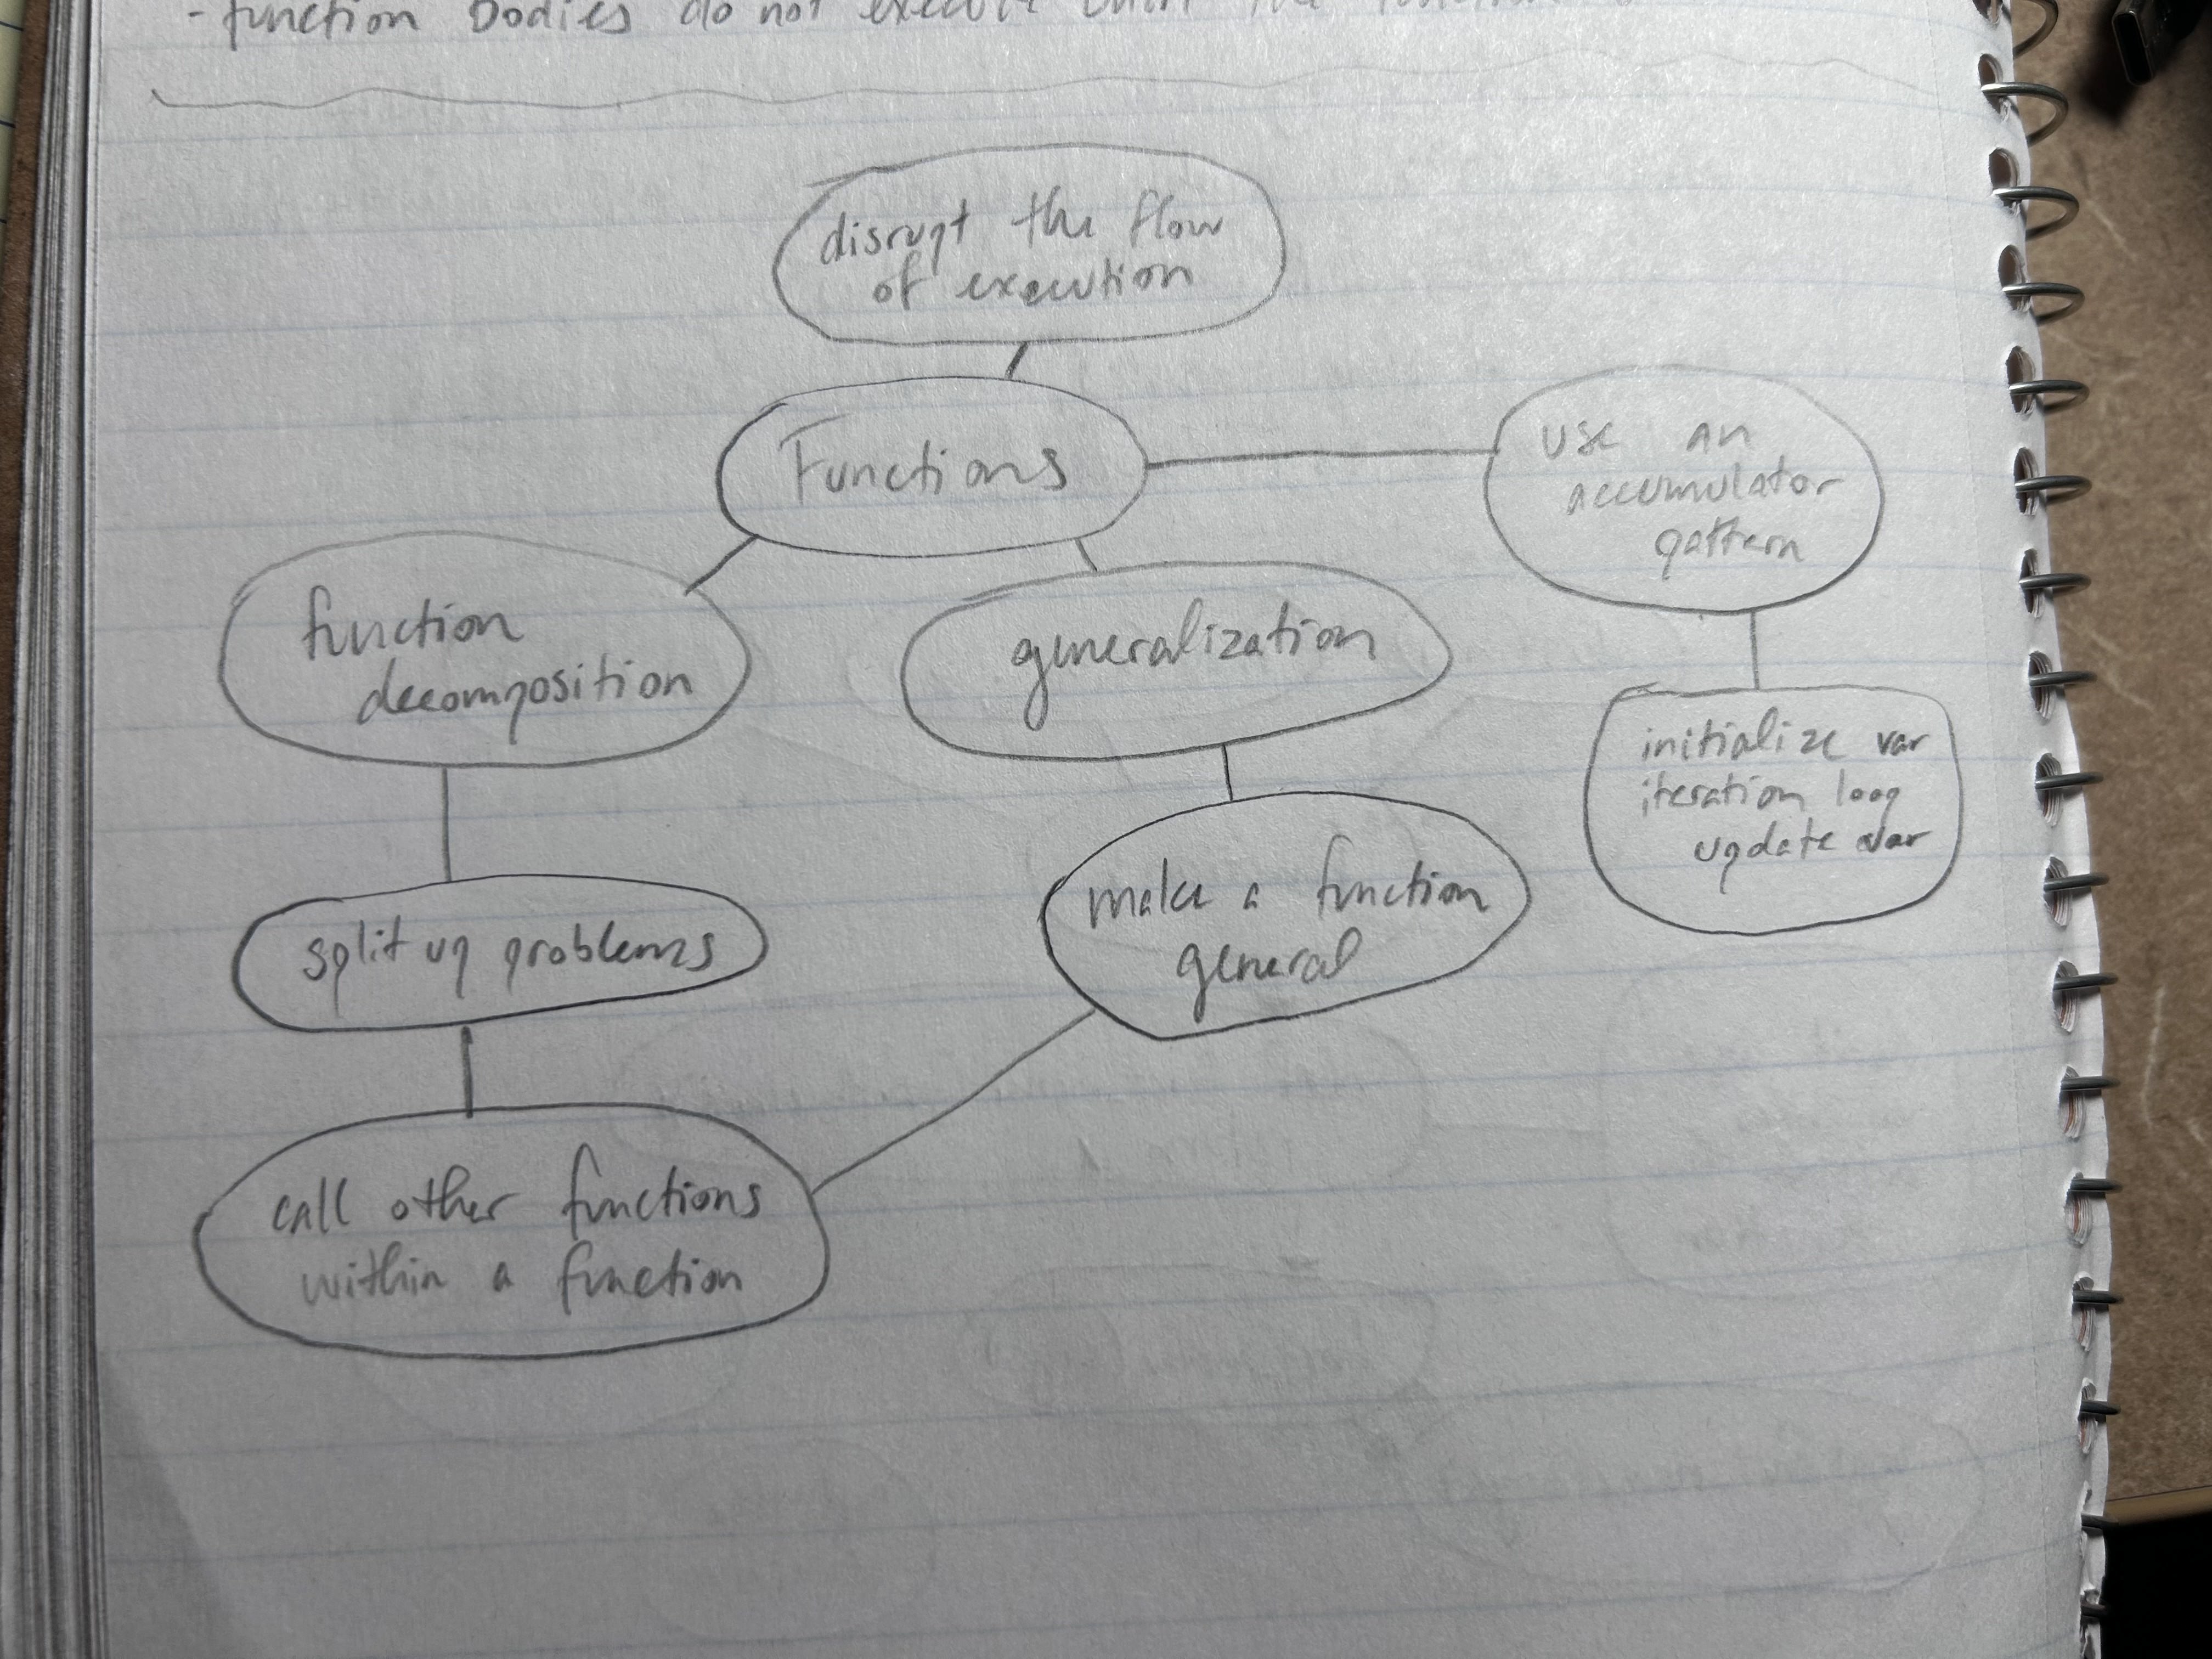 - function bodies do not execute until the function
disrupt the flow
of execution
Functions
use an
accumulator
pattern
function
decomposition
generalization
initialize var
iteration loop
update var
split up problems
make a function
general
call other functions
within a function